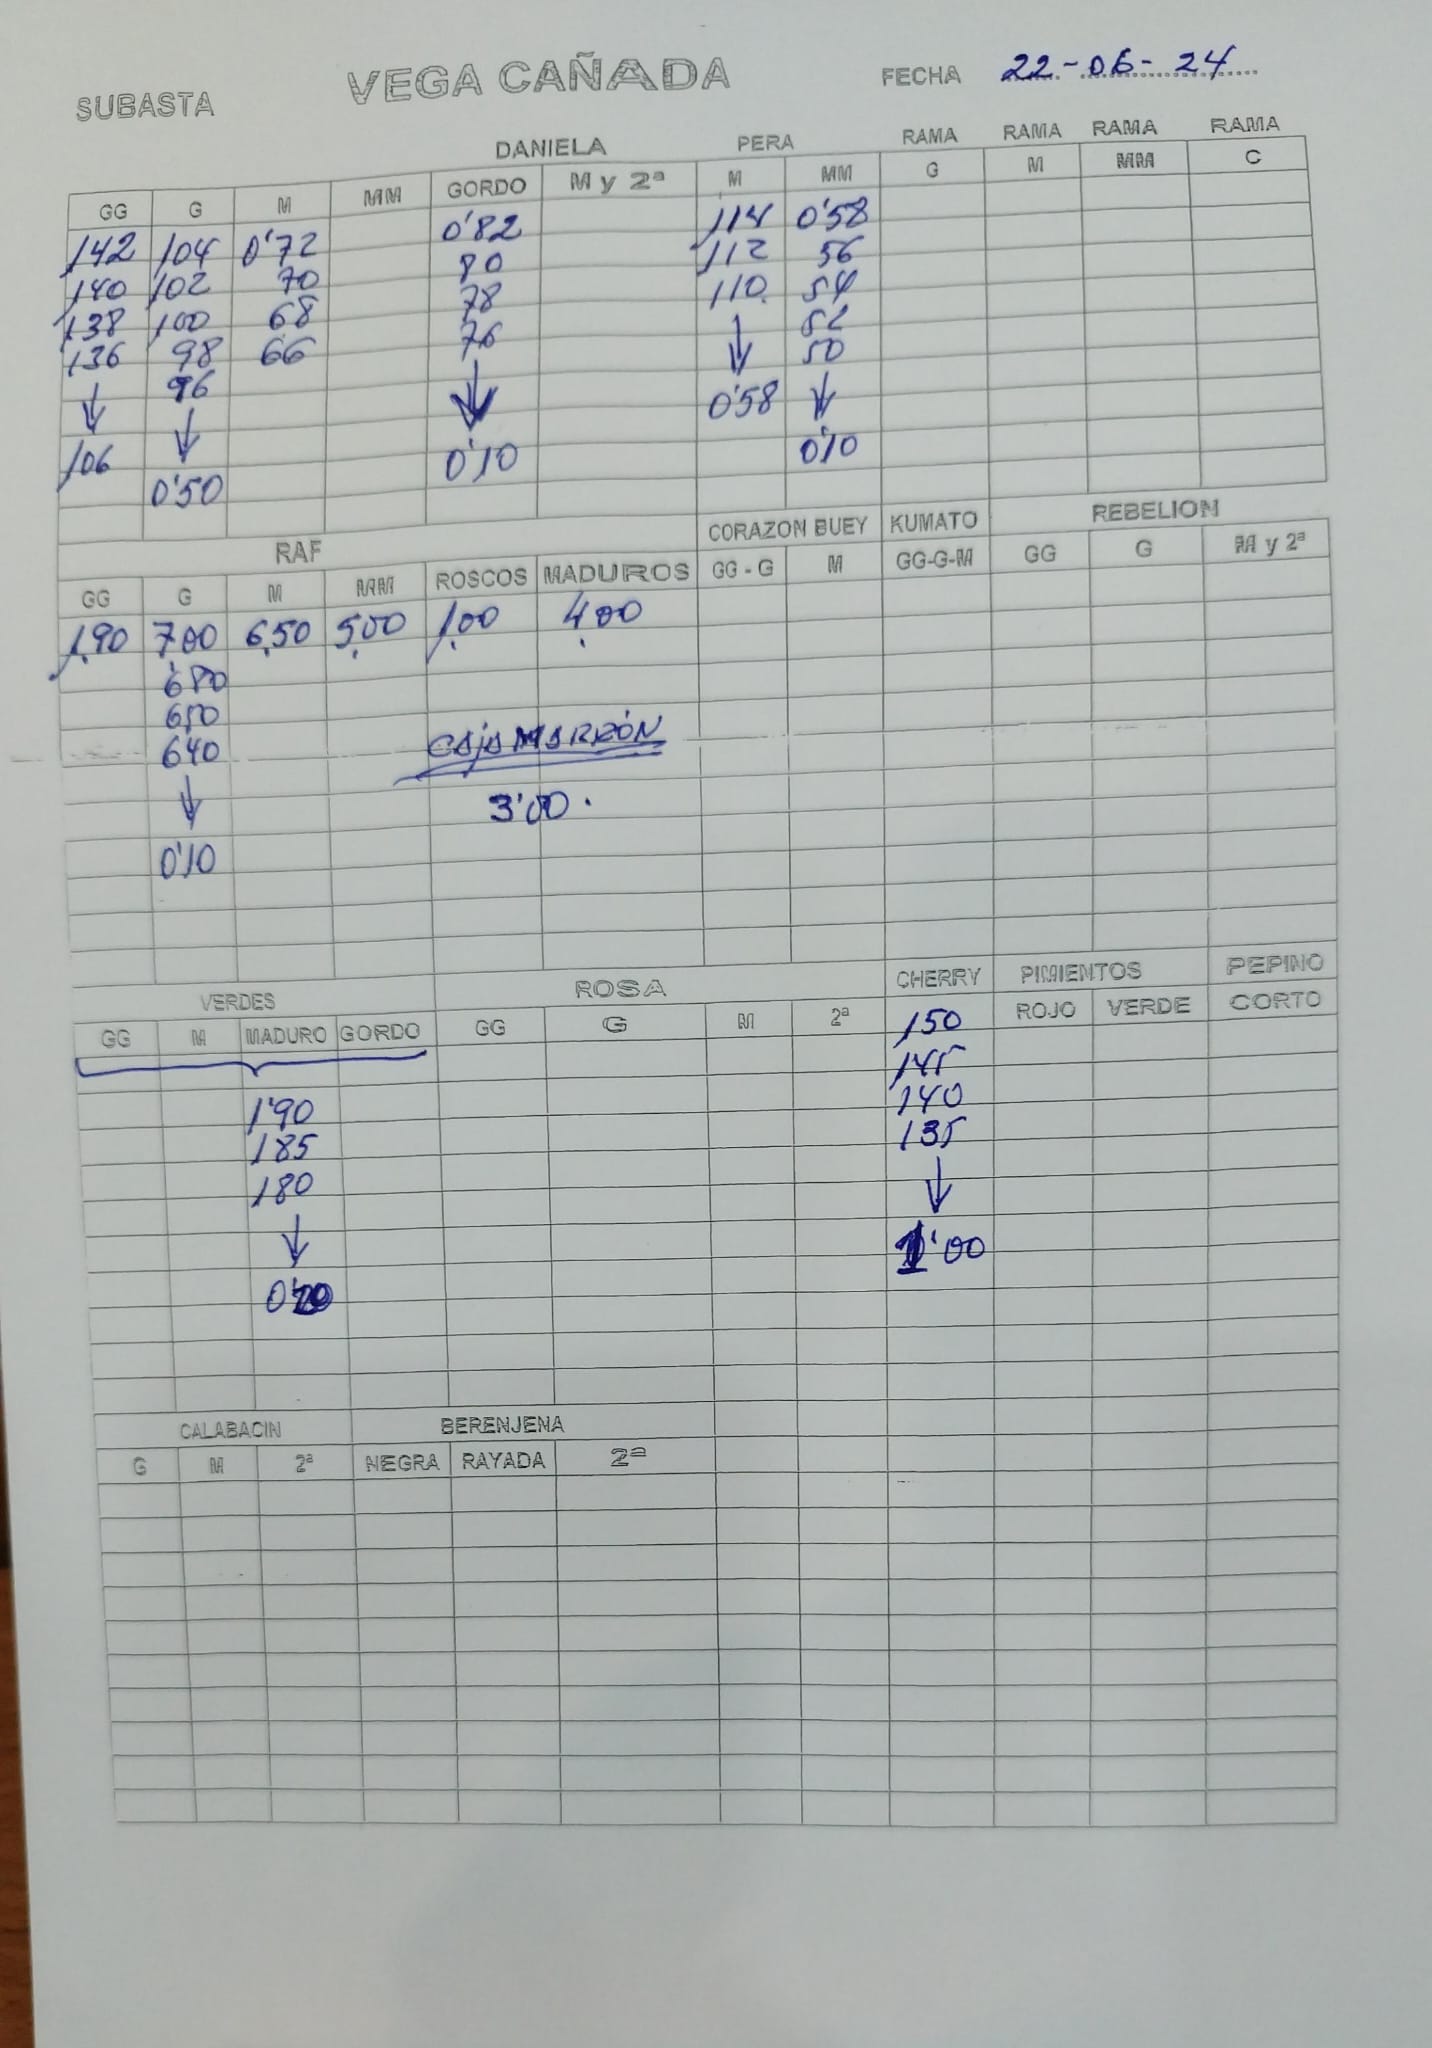 SUBASTA VEGA CAÑADA FECHA 22-06-24
DANIELA PERA RAMA RAMA RAMA RAMA
GG G M MM GORDO M y 2ª M MM G M MM C
142 104 0'72 0'82 114 0'58
140 102 70 80 112 56
138 100 68 78 110. 54
136 98 66 76 ↓ 52
↓ 96 ↓ 0'58 50
106 ↓ 0'10 ↓
0'50 0'10
RAF CORAZON BUEY KUMATO REBELION
GG G M MM ROSCOS MADUROS GG - G M GG-G-M GG G M y 2ª
1,90 7'00 6,50 5,00 1,00 4,00
6'80
650
640 CAJA MARRÓN
↓ 3'00.
0'10
VERDES ROSA CHERRY PIMIENTOS PEPINO
GG M MADURO GORDO GG G M 2ª 150 ROJO VERDE CORTO
145
1'90 140
185 135
180 ↓
↓ 1'00
CALABACIN BERENJENA
G M 2ª NEGRA RAYADA 2ª